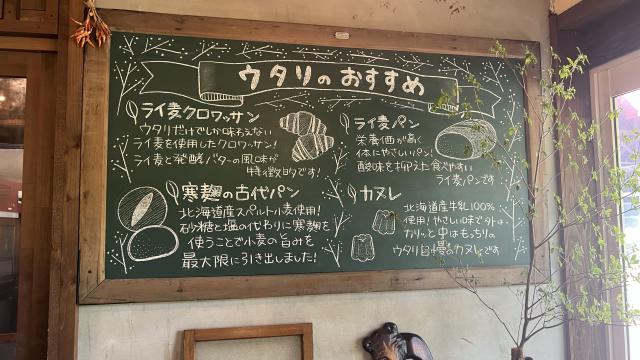 ウタリのおすすめ
ライ麦クロワッサン
ウタリだけでしか味わえない
ライ麦を使用したクロワッサン!
ライ麦と発酵バターの風味が
特徴的です!
ライ麦パン
栄養価が高く
体にやさしいパン!
酸味を抑えた食べやすい
ライ麦パンです
寒麹の古代パン
北海道産スペルト小麦使用!
砂糖と塩の代わりに寒麹を
使うことで小麦の旨みを
最大限に引き出しました!
カヌレ
北海道産牛乳100%
使用!やさしい味で外は
カリッと中はもっちりの
ウタリ自慢のカヌレです